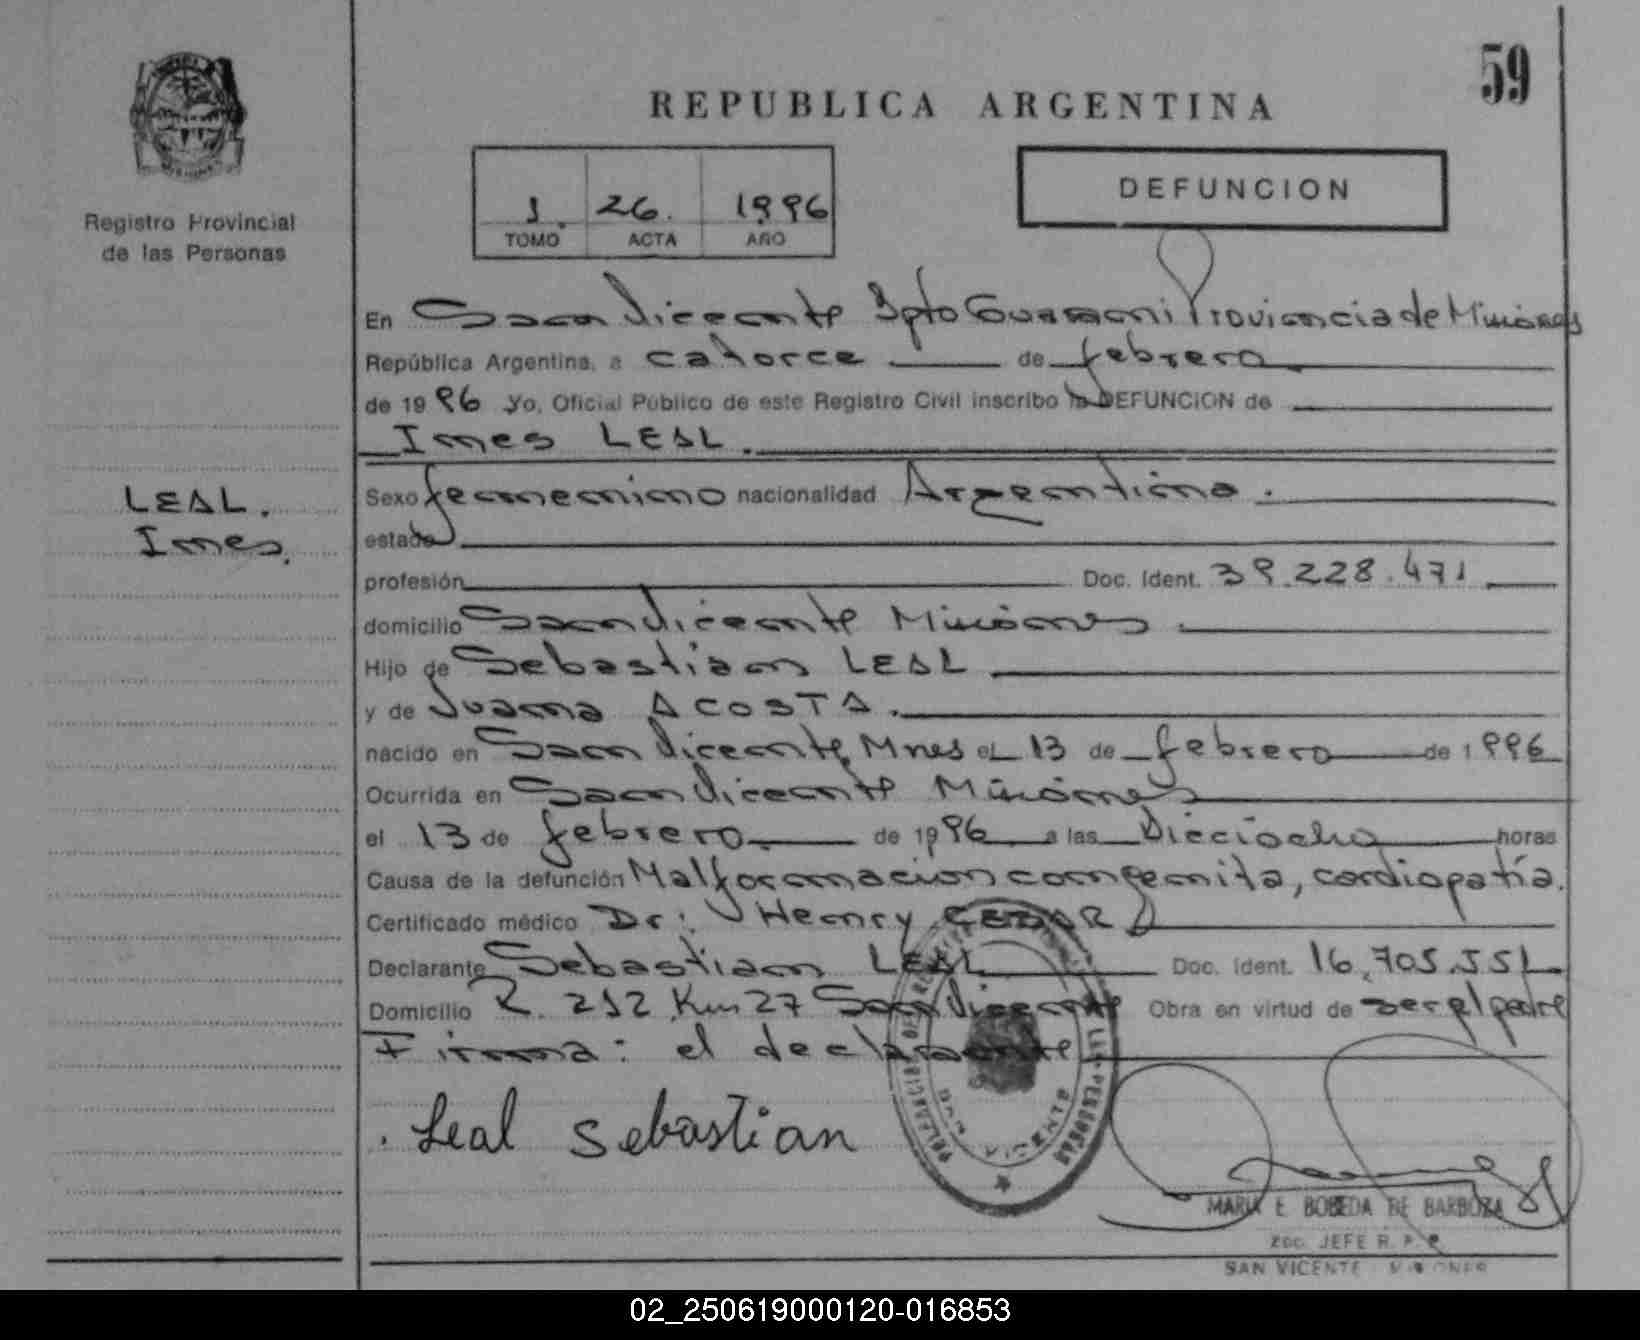 59
REPUBLICA ARGENTINA
DEFUNCION
1. 26. 1996
TOMO ACTA AÑO
Registro Provincial
de las Personas
LEAL.
Ines.
En San Vicente Dpto Guarani Provincia de Misiones
República Argentina, a catorce de febrero
de 1996 Yo, Oficial Público de este Registro Civil inscribo la DEFUNCION de
Ines LEAL.
Sexo femenino nacionalidad Argentina.
estado
profesión Doc. Ident. 39.228.471
domicilio San Vicente Misiones
Hijo de Sebastian LEAL
y de Juana ACOSTA.
nacido en San Vicente, Mnes el 13 de febrero de 1996
Ocurrida en San Vicente Misiones
el 13 de febrero de 1996 a las Dieciocho horas
Causa de la defunción Malformacion congenita, cardiopatía.
Certificado médico Dr: Henry
Declarante Sebastian LEAL Doc. Ident. 16.705.551
Domicilio R. 212 Km 27 San Vicente Obra en virtud de ser el padre
Firma: el declarante
Leal Sebastian
SAN VICENTE
MARIA E BOBEDA DE BARBOZA
JEFE R. P. P.
SAN VICENTE - MISIONES
02_250619000120-016853